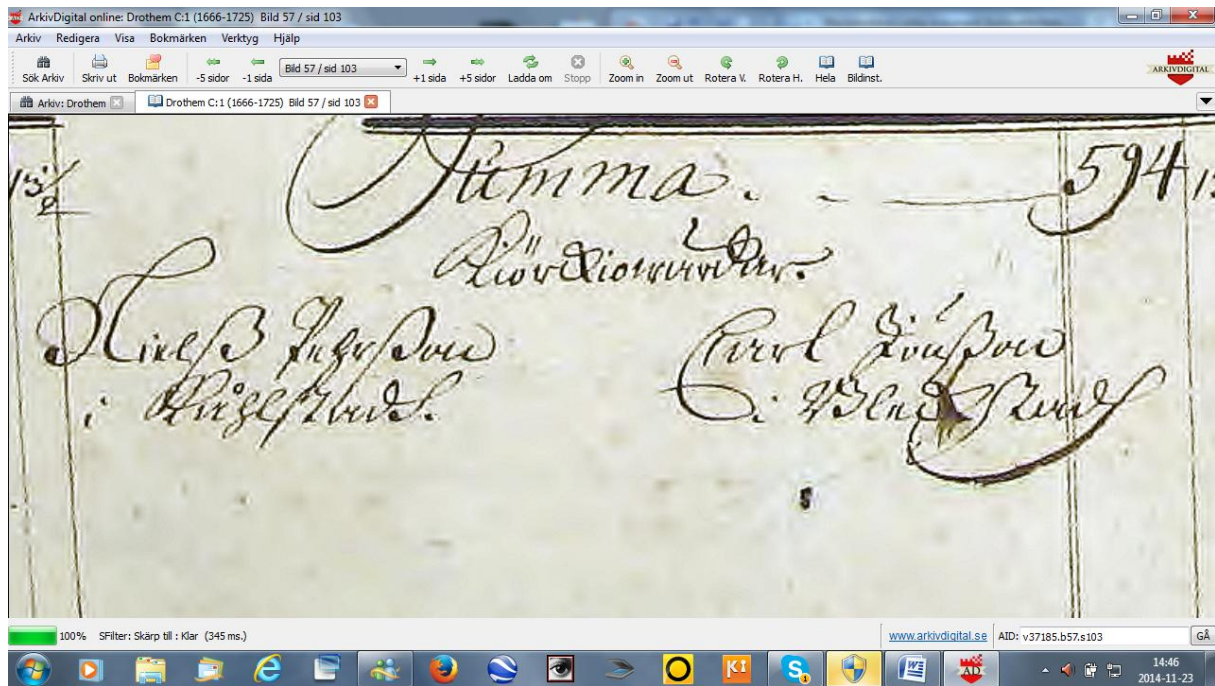 ArkivDigital online: Drothem C:1 (1666-1725) Bild 57 / sid 103
Arkiv Redigera Visa Bokmärken Verktyg Hjälp
Sök Arkiv Skriv ut Bokmärken -5 sidor -1 sida Bild 57 / sid 103 +1 sida +5 sidor Ladda om Stopp Zoom in Zoom ut Rotera V. Rotera H. Hela Bildinst.
ARKIVDIGITAL
Arkiv: Drothem Drothem C:1 (1666-1725) Bild 57 / sid 103
Summa. 594
Nielß Pehrßon Carl
i i
100% SFilter: Skärp till : Klar (345 ms.) www.arkivdigital.se AID: v37185.b57.s103 GÅ
14:46
2014-11-23